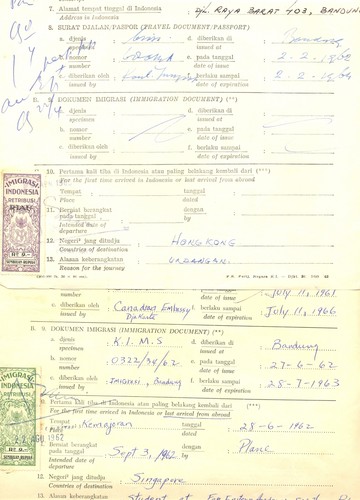 7. Alamat tempat tinggal di Indonesia : Djl. RAYA BARAT 403, BANDUNG
Address in Indonesia
8. SURAT DJALAN/PASPOR (TRAVEL DOCUMENT/PASSPORT)
a. djenis : d. diberikan di : Bandung
specimen issued at
b. nomor : e. pada tanggal : 2-2-
number date of issue
c. diberikan oleh : f. berlaku sampai : 2-2-
issued by date of expiration
B. 9. DOKUMEN IMIGRASI (IMMIGRATION DOCUMENT) (**)
a. djenis : d. diberikan di :
specimen issued at
b. nomor : e. pada tanggal :
number date of issue
c. diberikan oleh : f. berlaku sampai :
issued by date of expiration
10. Pertama kali tiba di Indonesia atau paling belakang kembali dari (***)
For the first time arrived in Indonesia or last arrived from abroad
Tempat : tanggal :
Place dated
11. Berniat berangkat pada tanggal : dengan :
Intended date of departure by
12. Negeri² jang ditudju : HONGKONG
Countries of destination
13. Alasan keberangkatan : UNDANGAN.
Reason for the journey
IMIGRASI
INDONESIA
RETRIBUSI
RIAU
Rp 2.-
REPUBLIK INDONESIA
number date of issue July 11, 1961
c. diberikan oleh : Canadian Embassy Djakarta f. berlaku sampai : July 11, 1966
issued by date of expiration
B. 9. DOKUMEN IMIGRASI (IMMIGRATION DOCUMENT) (**)
a. djenis : K.I.M.S d. diberikan di : Bandung
specimen issued at
b. nomor : 0322/34/62 e. pada tanggal : 27-6-62
number date of issue
c. diberikan oleh : Imigrasi, Bandung f. berlaku sampai : 25-7-1963
issued by date of expiration
Pertama kali tiba di Indonesia atau paling belakang kembali dari (***)
For the first time arrived in Indonesia or last arrived from abroad
Tempat : Kemajoran tanggal : 28-6-1962
Place dated
Berniat berangkat pada tanggal : Sept 3, 1962 dengan : Plane
Intended date of departure by
12. Negeri² jang ditudju : Singapore
Countries of destination
13. Alasan keberangkatan : Student at
IMIGRASI
INDONESIA
RETRIBUSI
22 AGU 1962
Rp 2.-
REPUBLIK INDONESIA